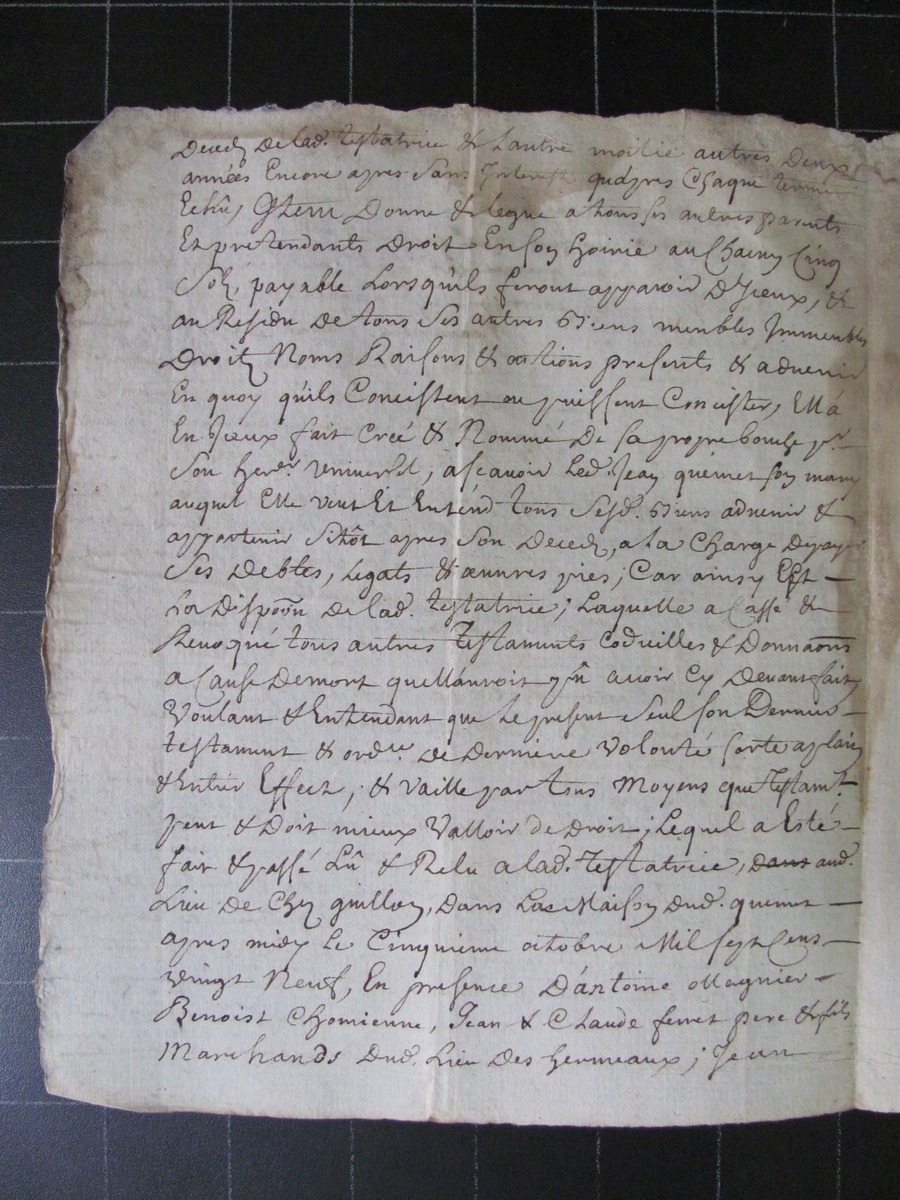 Deced De lad. testatrice & L'autre moitié autres Deux
années Encore apres sans Interest qu'apres Chaque terme
Echû, Item Donne & legue a tous ses autres parents
Et pretendants Droit En son hoirie au Chacun Cinq
Sols, payable Lorsqu'ils feront apparoir D'Iceux, &
au Residu De tous Ses autres Biens meubles Immeubles
Droits Noms Raisons & actions presents & advenir
En quoy qu'ils Concistent ou puissent Concister, Ell'a
En Iceux fait Creé & Nommé De sa propre bouche pr.
Son herer. universel, ascavoir led. Jean quemet son mary
auquel Elle veut Et Entend tous Sesd. Biens advenir &
appartenir Sitôt apres Son Deced, a la Charge De payer
Ses Debtes, Legats & œuvres pies; Car ainsy Est —
La Dispoõn De lad. testatrice; Laquelle a Cassé &
Revoqué tous autres Testaments Codicilles & Donnaõns
a Cause De mort quell'auroit pû avoir Cy Devant faits
Voulant & Entendant que Le present Seul son Dernier —
testament & ordce. De Derniere Volonté sorte a plain
& Entier Effect; & Vaille par tous Moyens que Testamt.
peut & Doit mieux Valloir de Droit; Lequel a Esté —
fait & passé Lû & Relu a lad. Testatrice, dans aud.
Lieu De Chez guilloy, Dans La Maison Dud. quemet —
apres midy Le Cinquieme octobre Mil sept Cens —
vingt Neuf, En presence D'antoine Magnier —
Benoist Chomienne, Jean & Claude ferret pere & fils
Marchands Dud. Lieu Des hermeaux; Jean —